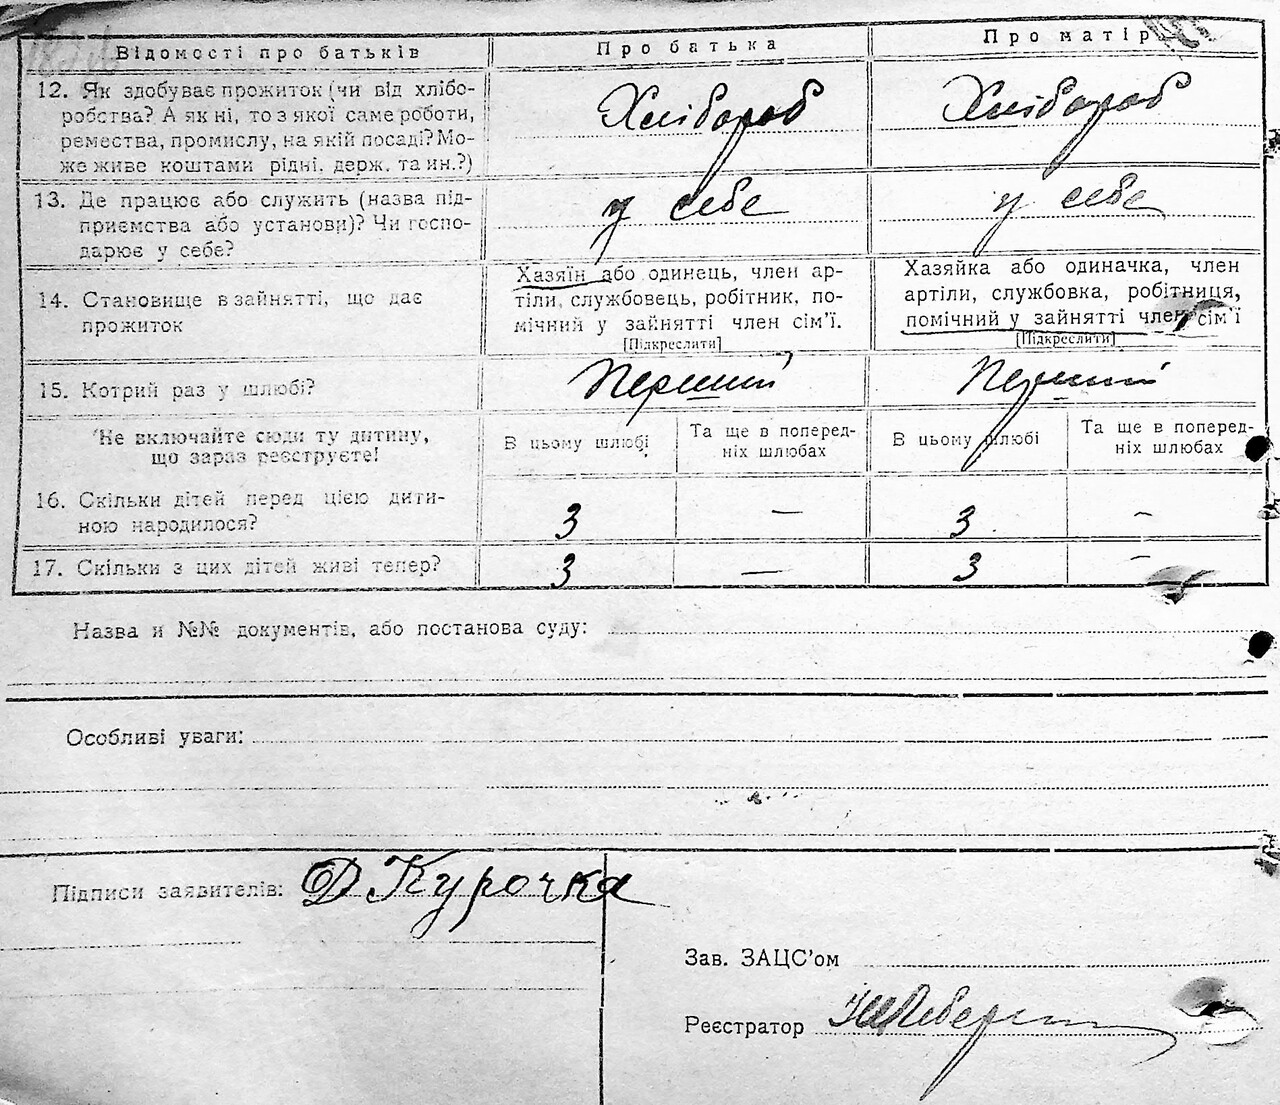 Відомості про батьків
Про батька
Про матір
12. Як здобуває прожиток (чи від хлібо-
робства? А як ні, то з якої саме роботи,
ремества, промислу, на якій посаді? Мо-
же живе коштами рідні, держ. та ин.?)
Хлібороб
Хлібороб
13. Де працює або служить (назва під-
приємства або установи)? Чи госпо-
дарює у себе?
у себе
у себе
14. Становище в зайнятті, що дає
прожиток
Хазяїн або одинець, член ар-
тіли, службовець, робітник, по-
мічний у зайнятті член сім'ї.
[Підкреслити]
Хазяйка або одиначка, член
артіли, службовка, робітниця,
помічний у зайнятті член сім'ї
[Підкреслити]
15. Котрий раз у шлюбі?
Перший
Перший
Не включайте сюди ту дитину,
що зараз реєструєте!
В цьому шлюбі
Та ще в поперед-
ніх шлюбах
В цьому шлюбі
Та ще в поперед-
ніх шлюбах
16. Скільки дітей перед цією дити-
ною народилося?
3
—
3
—
17. Скільки з цих дітей живі тепер?
3
—
3
—
Назва и №№ документів, або постанова суду:
Особливі уваги:
Підписи заявителів: Д Курочка
Зав. ЗАЦС'ом
Реєстратор